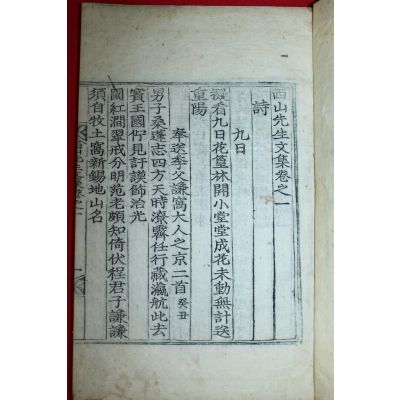 西山先生文集卷之一
詩
九日
凝看九日花篁林開小堂堂成花未動無計送
重陽
奉送季父謙窩大人之京二首 癸丑
男子桑蓬志四方天時潦霽任行藏瀛航此去
賓王國佇見訏謨飾治光
圖紅澗翠戒分明苑老頗知倚伏程君子謙謙
須自牧土窩新錫地山名